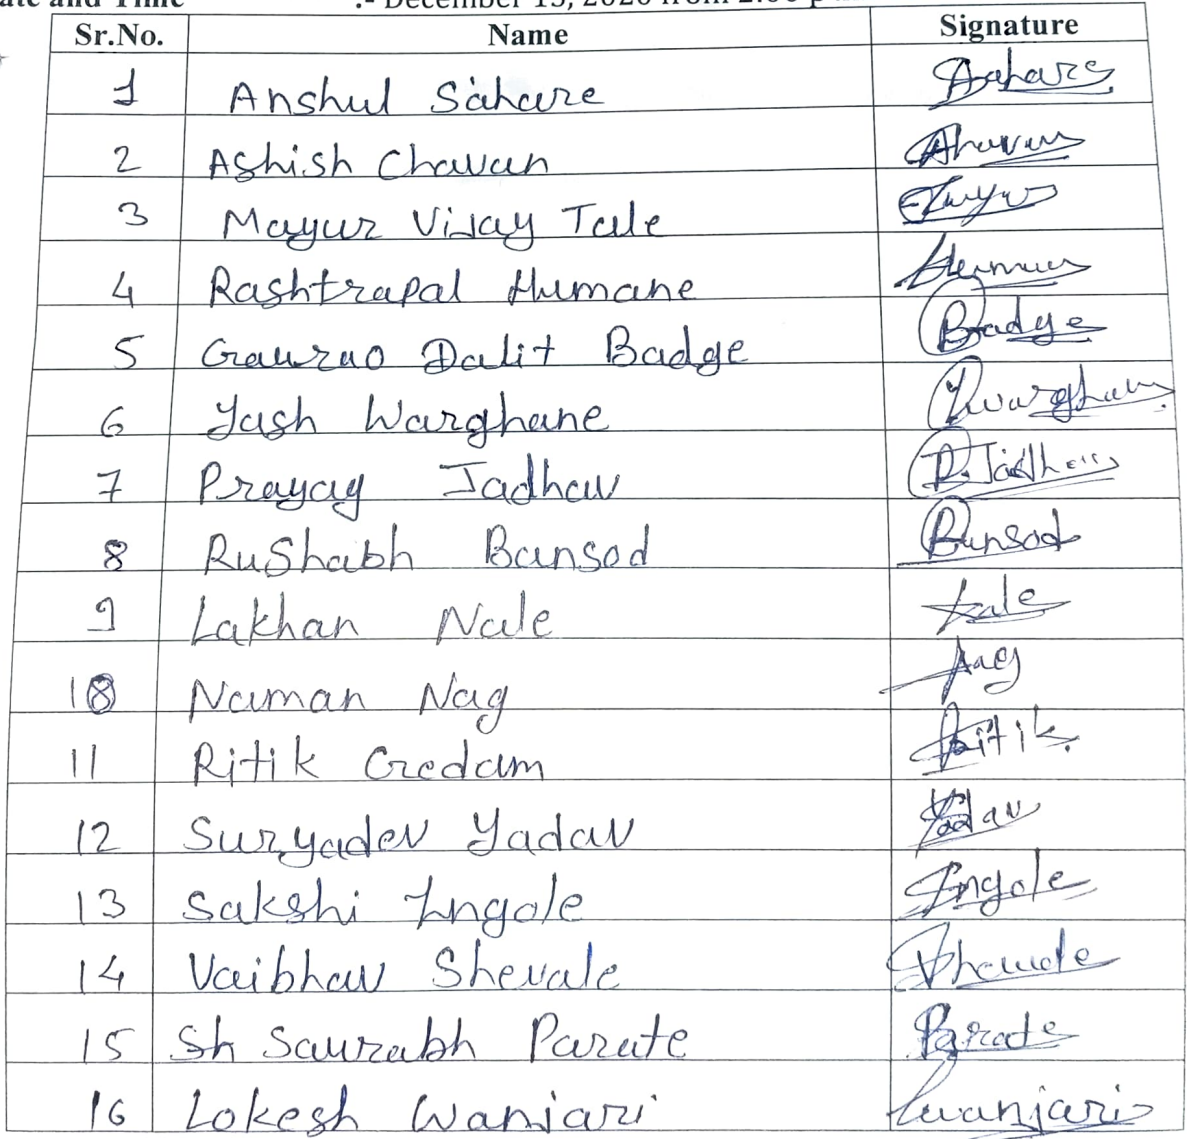 Sr.No. Name Signature
1 Anshul Sahare Sahare
2 Ashish Chavan Chavan
3 Mayur Vijay Tale
4 Rashtrapal Humane
5 Gaurao Dalit Badge Badge
6 Yash Warghane
7 Prayag Jadhav P. Jadhav
8 RuShabh Bansod Bansod
9 Lakhan Nale Nale
10 Naman Nag Nag
11 Ritik Gedam Ritik
12 Suryadev Yadav Yadav
13 Sakshi Ingole Ingole
14 Vaibhav Shevale
15 Sh Saurabh Parate Parate
16 Lokesh Wanjari Lwanjari